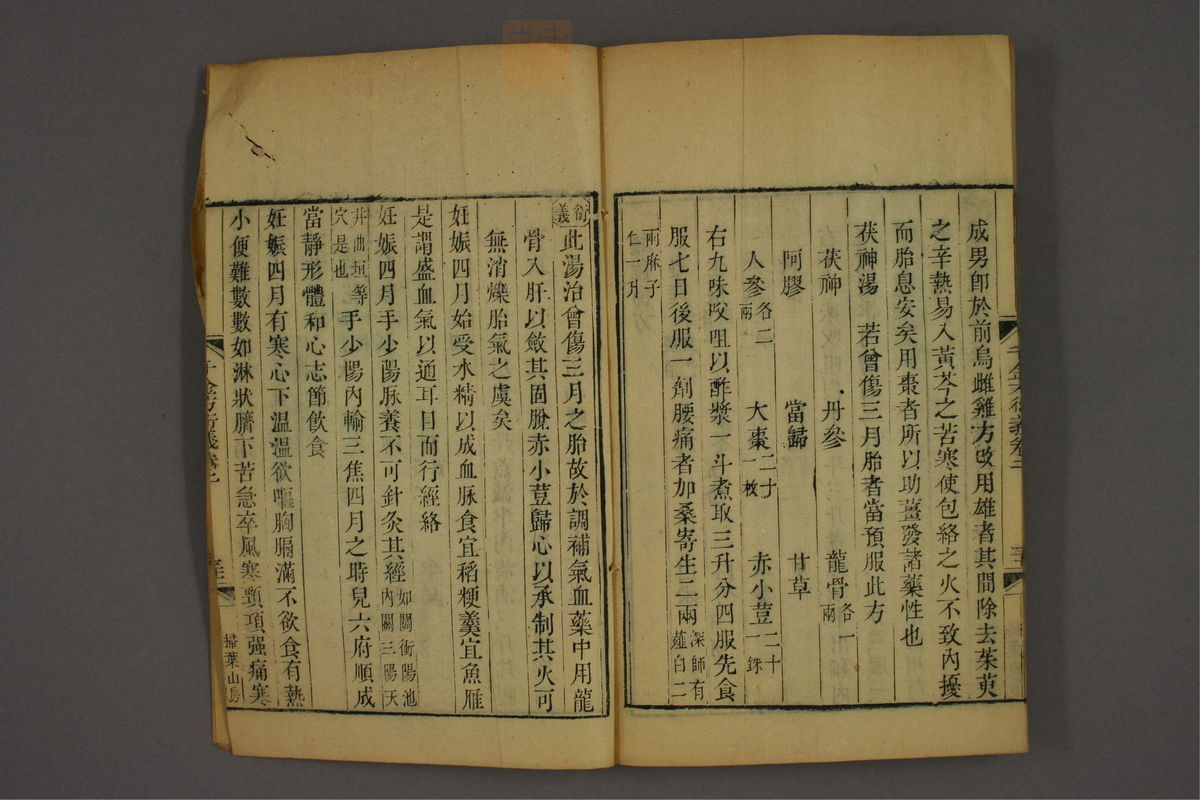 成男卽於前烏雌雞方改用雄者其間除去茱萸
之辛熱易入黃芩之苦寒使包絡之火不致內擾
而胎息安矣用棗者所以助薑發諸藥性也
茯神湯 若曾傷三月胎者當預服此方
茯神 丹參 龍骨各一兩
阿膠 當歸 甘草
人參各二兩 大棗二十一枚 赤小荳二十一銖
右九味㕮咀以酢漿一斗煮取三升分四服先食
服七日後服一劑腰痛者加桑寄生二兩深師有薤白二
兩麻子仁一升
衍義此湯治曾傷三月之胎故於調補氣血藥中用龍
骨入肝以斂其固脫赤小荳歸心以承制其火可
無消爍胎氣之虞矣
妊娠四月始受水精以成血脉食宜稻粳羹宜魚雁
是謂盛血氣以通耳目而行經絡
妊娠四月手少陽脉養不可針灸其經如關衝陽池內關三陽天
井曲垣等穴是也手少陽內輸三焦四月之時兒六府順成
當靜形體和心志節飲食
妊娠四月有寒心下溫溫欲嘔胸膈滿不欲食有熱
小便難數數如淋狀臍下苦急卒風寒頸項强痛寒
千金方衍義卷二
掃葉山房